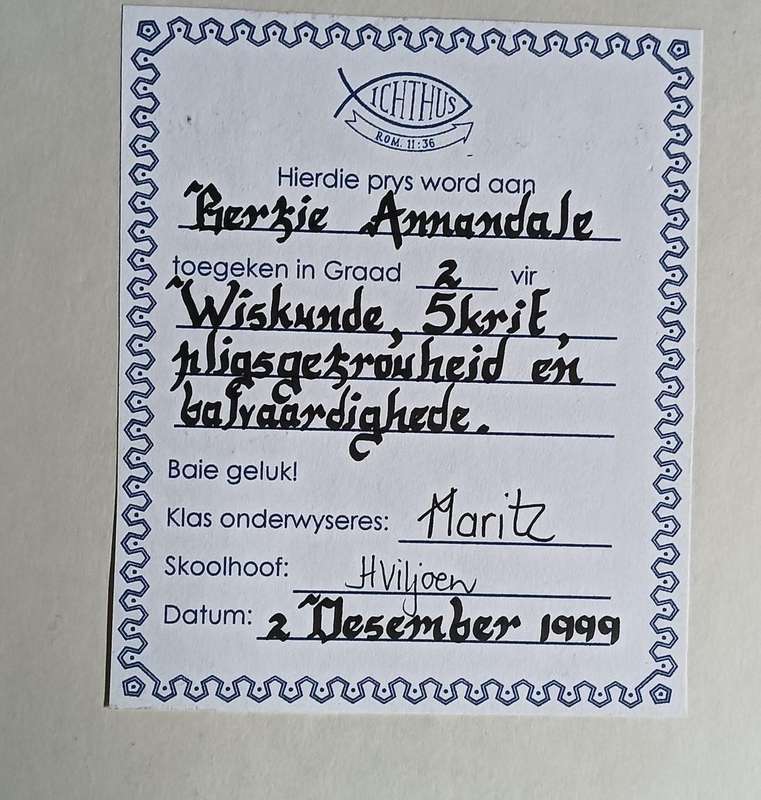 ICHTHUS
ROM. 11:36
Hierdie prys word aan
Bertie Annandale
toegeken in Graad 2 vir
Wiskunde, Skrif,
pligsgetrouheid en
balvaardighede.
Baie geluk!
Klas onderwyseres: Maritz
Skoolhoof: HViljoen
Datum: 2 Desember 1999